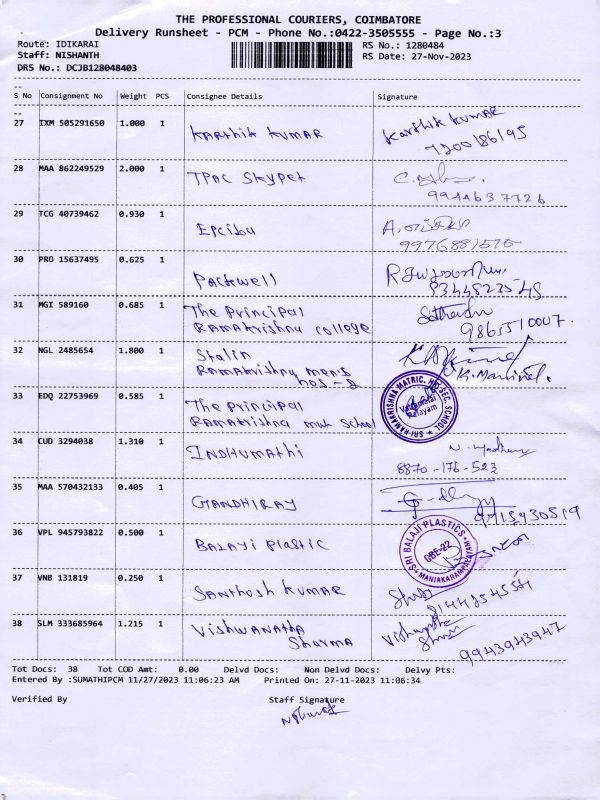 THE PROFESSIONAL COURIERS, COIMBATORE
Delivery Runsheet - PCM - Phone No.:0422-3505555 - Page No.:3
Route: IDIKARAI RS No.: 1280484
Staff: NISHANTH RS Date: 27-Nov-2023
DRS No.: DCJB128048403
S No Consignment No Weight PCS Consignee Details Signature
27 IXM 505291650 1.000 1 Karthik Kumar Karthik Kumar
7200186195
28 MAA 862249529 2.000 1 TPAC Skypet
9944637726
29 TCG 40739462 0.930 1
30 PRO 15637495 0.625 1 Packwell
31 MGI 589160 0.685 1 The Principal
Ramakrishna College
32 NGL 2485654 1.800 1 Stalin
Ramakrishna men's
33 EDQ 22753969 0.585 1 The principal
Ramakrishna School
SRI RAMAKRISHNA MATRIC. HR. SEC. SCHOOL
34 CUD 3294038 1.310 1 Indhumathi
8870-176-523
35 MAA 570432133 0.405 1 Gandhiraj
9715430519
36 VPL 945793822 0.500 1 Balaji Plastic
SRI BALAJI PLASTICS
CBE-22
37 VNB 131819 0.250 1 Santhosh Kumar
38 SLM 333685964 1.215 1 Vishwanatha
Sharma
9943943947
Tot Docs: 38 Tot COD Amt: 0.00 Delvd Docs: Non Delvd Docs: Delvy Pts:
Entered By :SUMATHIPCM 11/27/2023 11:06:23 AM Printed On: 27-11-2023 11:06:34
Verified By Staff Signature